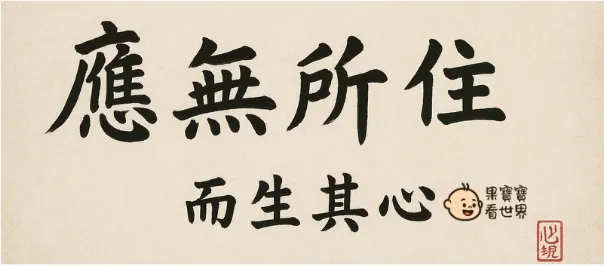 應無所住
而生其心
果寶寶
看世界
心現